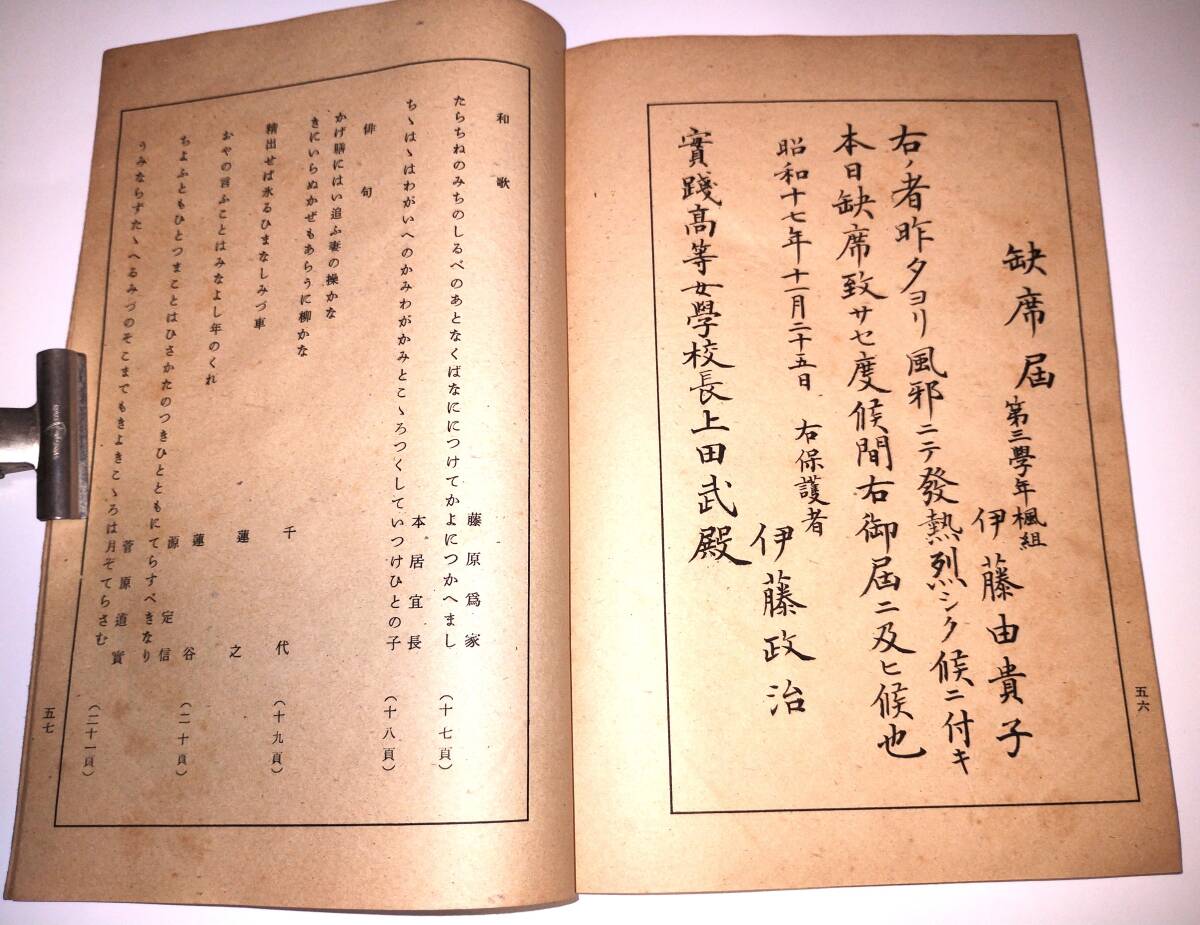 缺席届
第三學年楓組
伊藤由貴子
右ノ者昨夕ヨリ風邪ニテ發熱烈シク候ニ付キ
本日缺席致サセ度候間右御届ニ及ヒ候也
昭和十七年十一月二十五日
右保護者
伊藤政治
實踐高等女學校長上田武殿
五六
和歌
藤原爲家
たらちねのみちのしるべのあとなくばなににつけてかよにつかへまし
(十七頁)
本居宜長
ちゝはゝはわがいへのかみわがかみとこゝろつくしていつけひとの子
(十八頁)
俳句
かげ膳にはい追ふ妻の操かな
きにいらぬかぜもあらうに柳かな
千代
(十九頁)
精出せば氷るひまなしみづ車
蓮之
おやの言ふことはみなよし年のくれ
蓮谷
(二十頁)
源定信
ちよふともひとつまことはひさかたのつきひとともにてらすべきなり
うみならずたゝへるみづのそこまでもきよきこゝろは月ぞてらさむ
菅原道實
(二十一頁)
五七